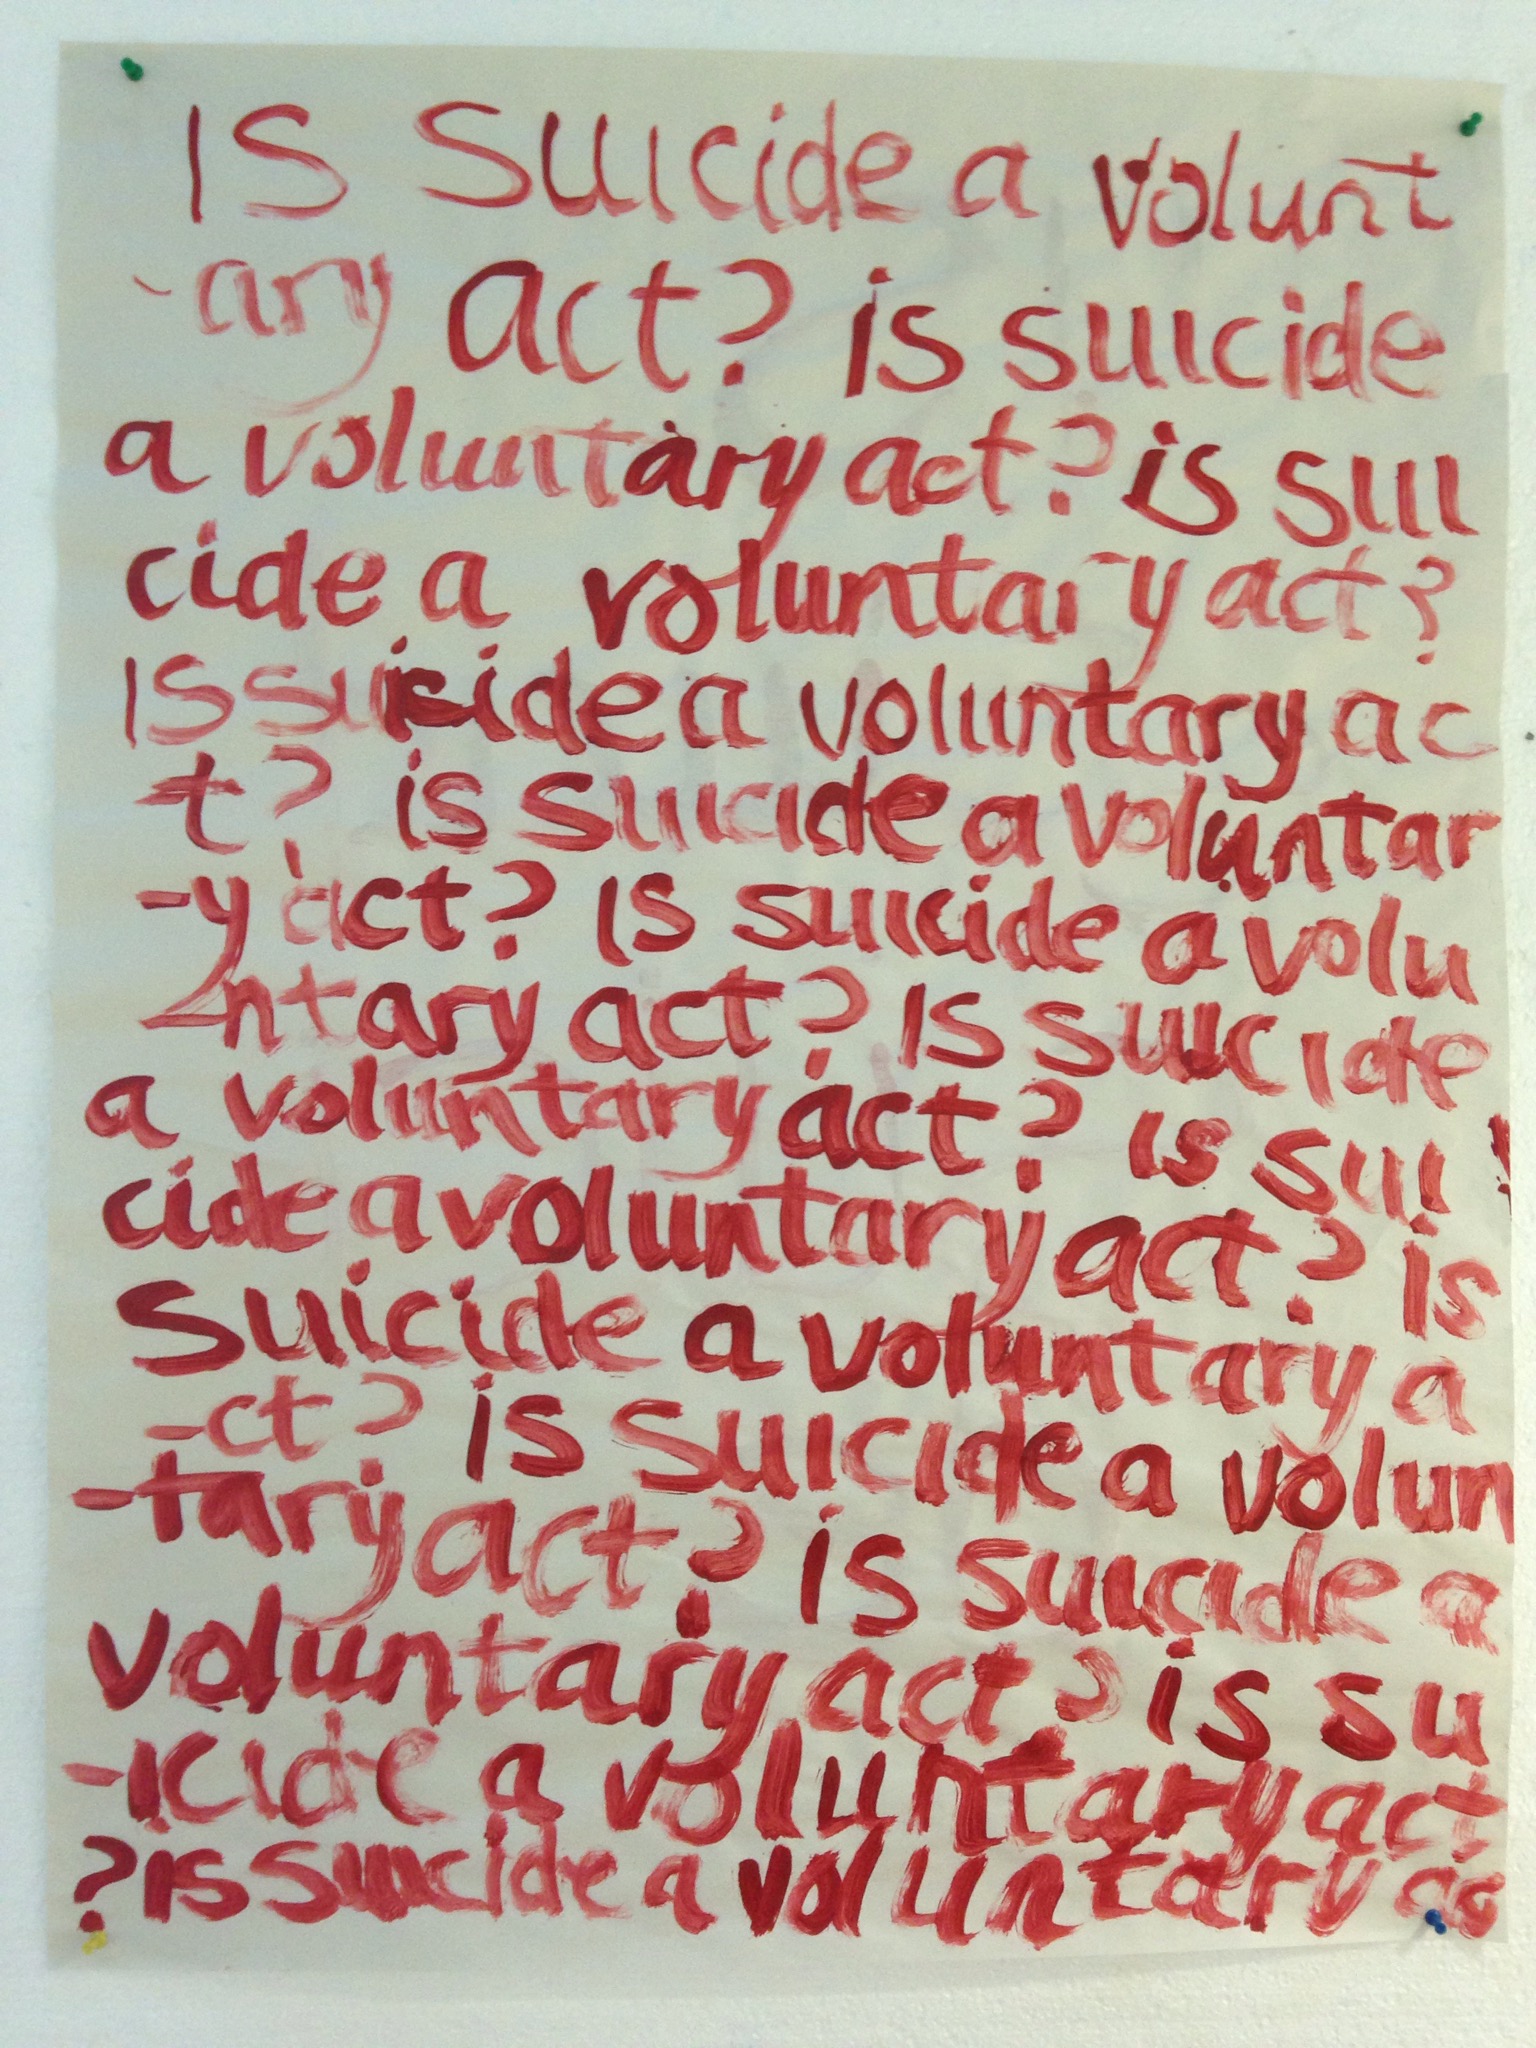 IS Suicide a volunt
-ary act? is suicide
a voluntary act? is sui
cide a voluntary act?
IS suicide a voluntary ac
-t? is suicide a voluntar
-y act? IS suicide a volu
-ntary act? IS suicide
a voluntary act? is sui
cide a voluntary act? is
Suicide a voluntary a
-ct? is suicide a volun
-tary act? is suicide a
voluntary act? is su
-icide a voluntary act
? is suicide a voluntary ac